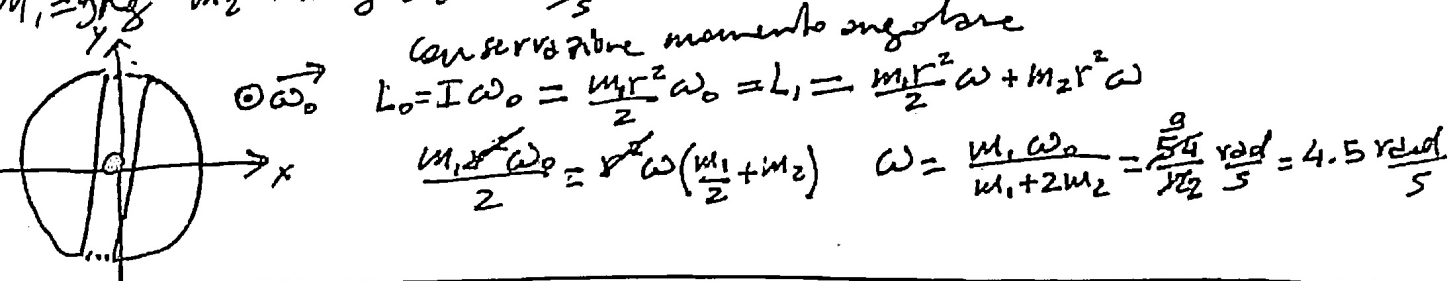 conservazione momento angolare
y
⊙ω₀ L₀=Iω₀ = m₁r²/2 ω₀ = L₁ = m₁r²/2 ω + m₂r²ω
x
m₁r²ω₀/2 = r²ω(m₁/2 + m₂) ω = m₁ω₀/(m₁+2m₂) = 54/12 rad/s = 4.5 rad/s